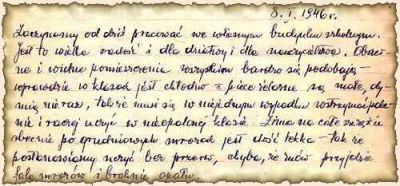 8. I. 1946 r.
Zaczynamy od dziś pracować we własnym budynku szkolnym.
Jest to wielka radość i dla dziatwy i dla nauczycielstwa. Obszer-
ne i widne pomieszczenia wszystkim bardzo się podobają -
wprawdzie w klasach jest chłodno - piece żelazne są małe, dy-
mią nieraz, także musi się w niejednym wypadku wstrzymać pale-
nie i raczej uczyć w nieopalonej klasie. Zima na całe szczęście
obecnie po grudniowych mrozach jest dość lekka - tak że
postanowiamy uczyć bez przerw, chyba, że znów przyjdzie
fala mrozów i braknie opału.